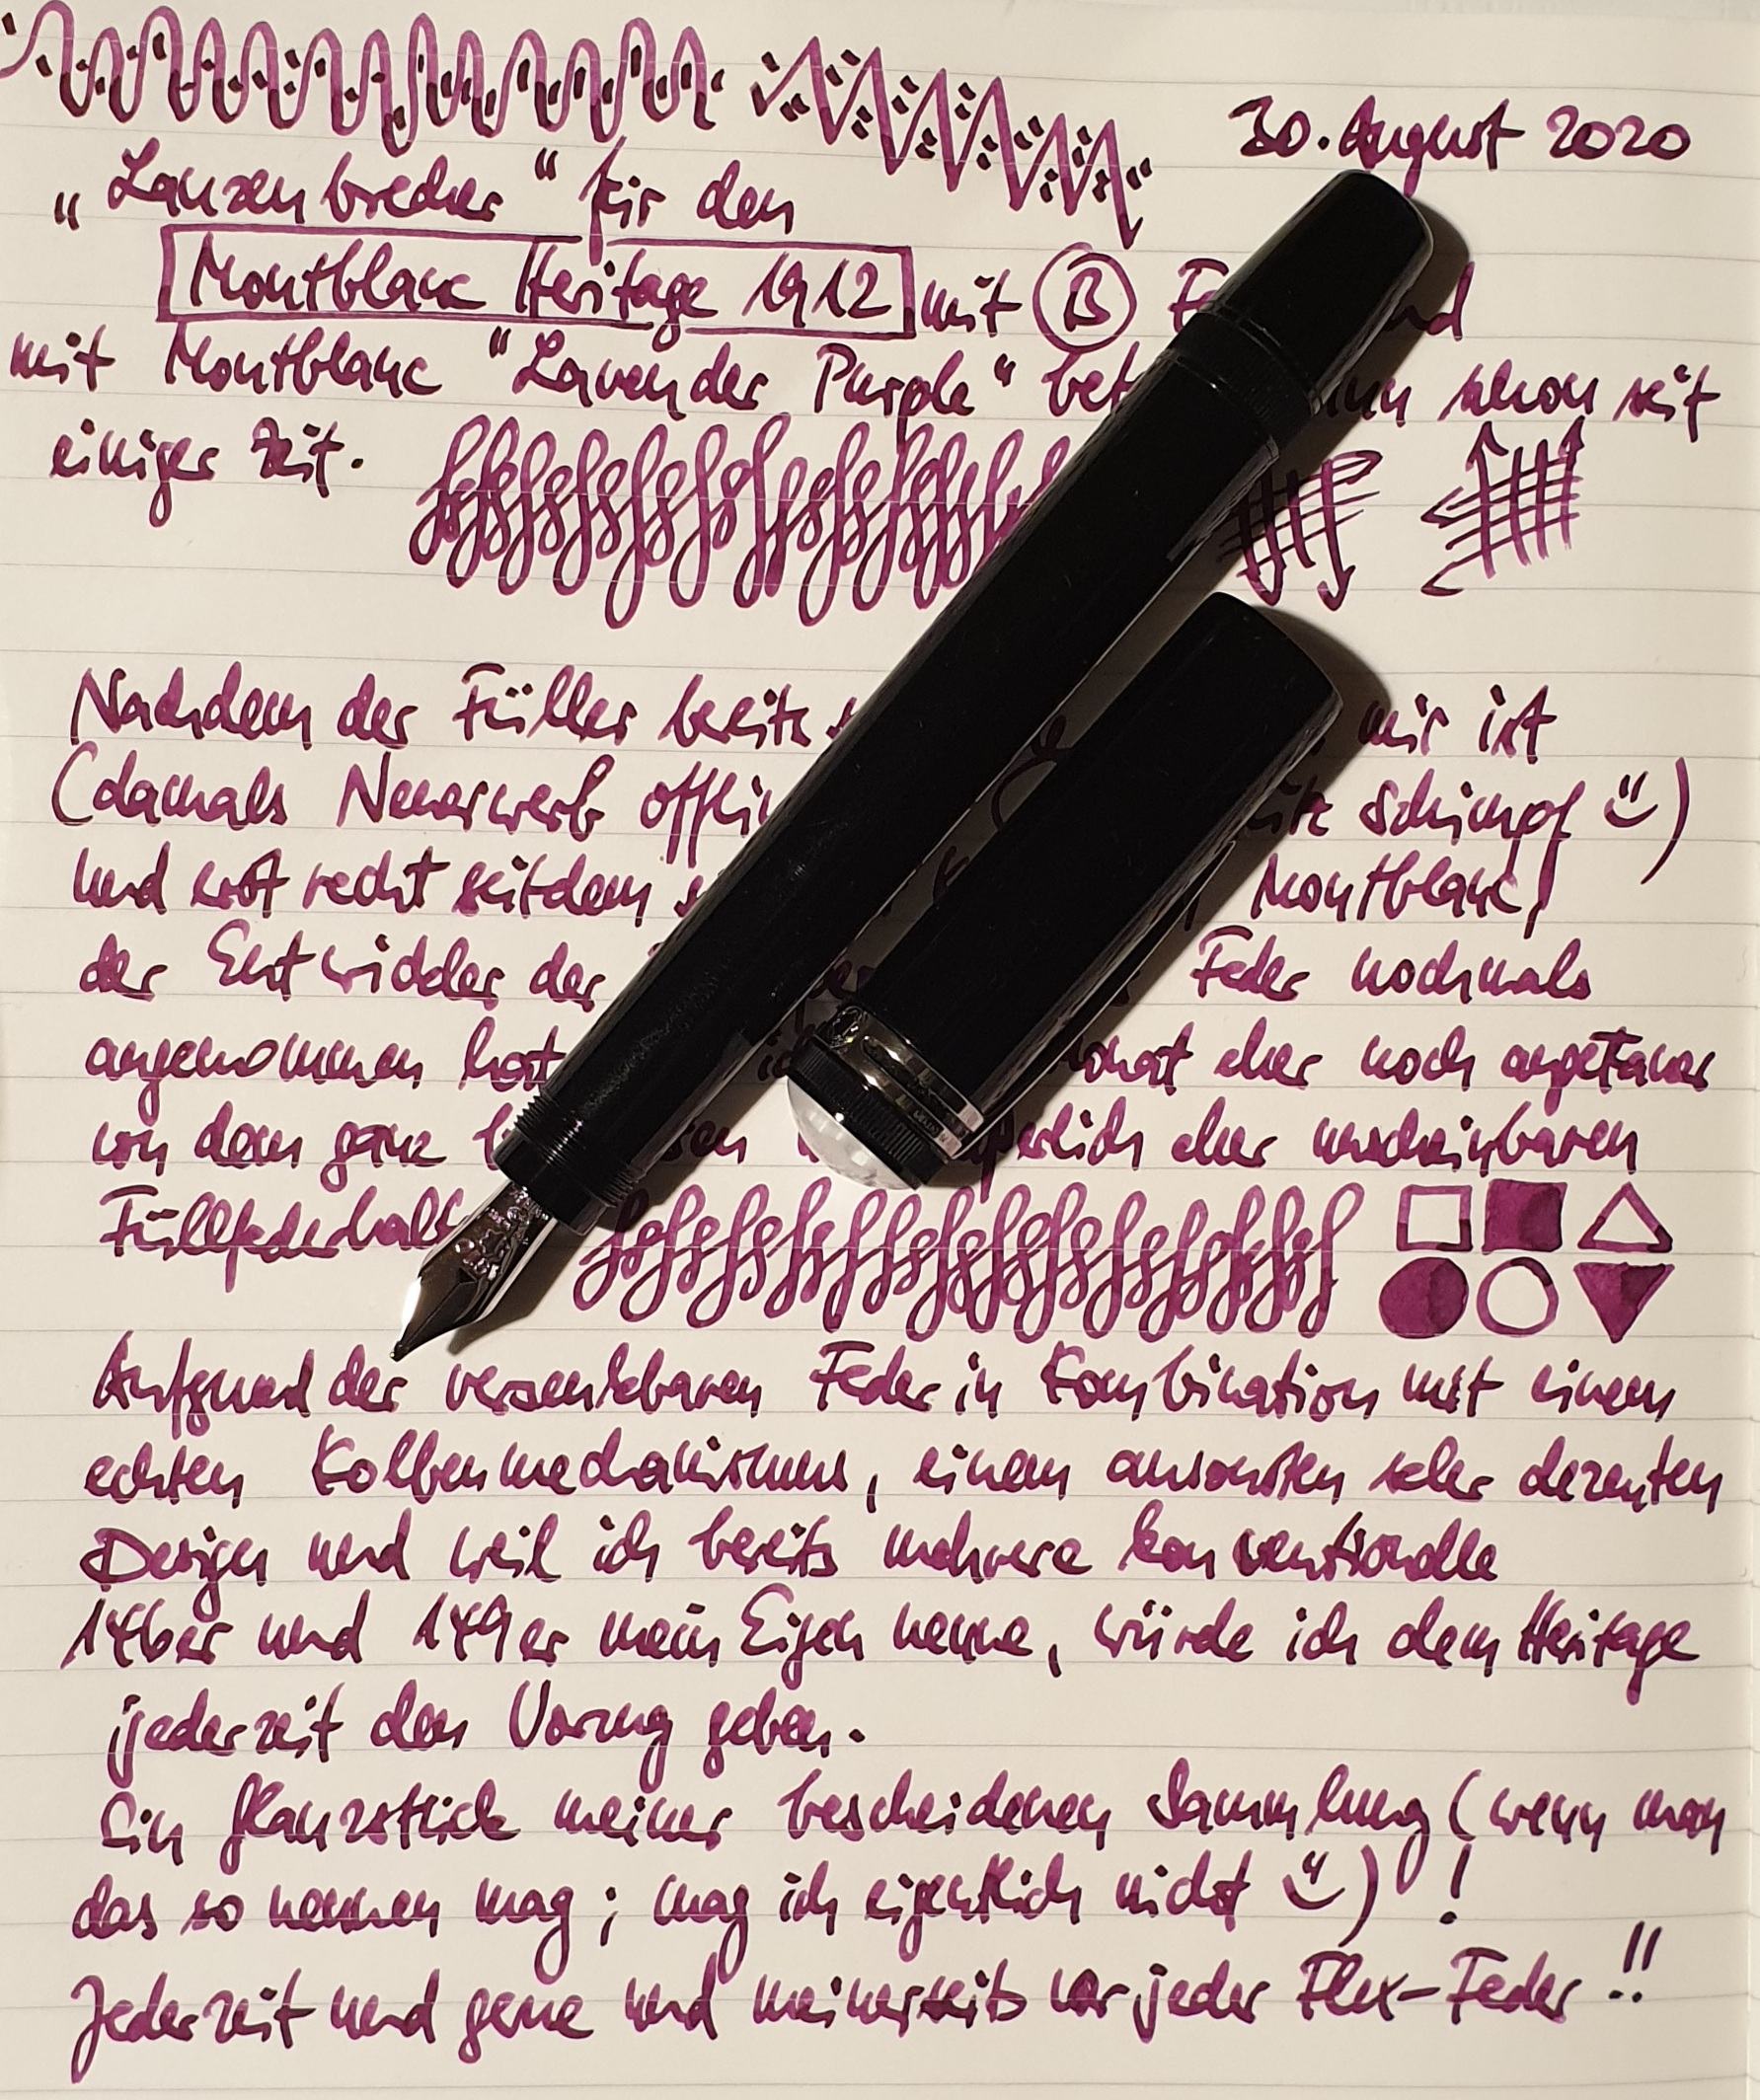 30. August 2020
„Lanzenbrecher" für den
Montblanc Heritage 1912 mit B
mit Montblanc "Lavender Purple" schon seit
einiger Zeit.
Nachdem der Füller bereits mir ist
(damals Neuerwerb Schimpf )
und erst recht seitdem Montblanc,
der Entwickler der Feder nochmals
angenommen hat eher noch angetaner
von dem ganz eher unscheinbaren
Aufgrund der versenkbaren Feder in Kombination mit einem
echten Kolbenmechanismus, einem ansonsten sehr dezenten
Design und weil ich bereits mehrere konventionelle
146er und 149er mein Eigen nenne, würde ich dem Heritage
jederzeit den Vorzug geben.
Ein Glanzstück meiner bescheidenen Sammlung (wenn man
das so nennen mag; mag ich eigentlich nicht )!
Jederzeit und gerne und meinerseits vor jeder Flex-Feder!!